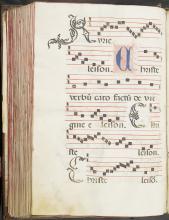 Kyrie
eleison. Christe
verbū caro factū de vir
gine eleison. Chri
ste eleison.
Christe eleisō.